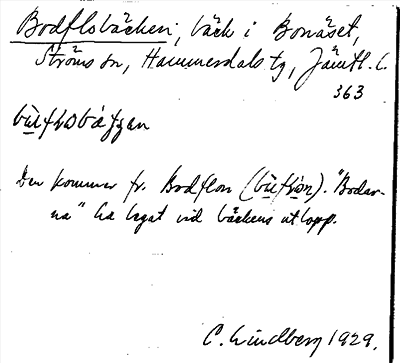 Bodflobäcken, bäck i Bonäset,
Ströms sn, Hammerdals tg, Jämtl. l.
363
Den kommer fr. Bodflon ( ). "Bodar-
na" ha legat vid bäckens utlopp.
C. Lindberg 1929.